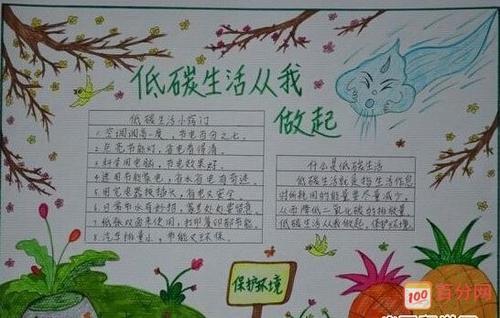 低碳生活从我
做起
低碳生活小窍门
1.空调调高一度,节电百分之七。
2.巧亮节能灯,省电有得清。
3.科学用电脑,节电效果好。
4.选用节能家电,省水省电有奇迹。
5.用完电器拔插头,省电又安全
6.日常节水有妙招,
7.纸张双面来使用,
8.汽车排量小,节能又环保。
什么是低碳生活
低碳生活就是指生活作息
时所耗用的能量要尽量减少,
从而降低二氧化碳的排放量。
低碳生活从我做起,保护环境。
保护环境
100
百分网